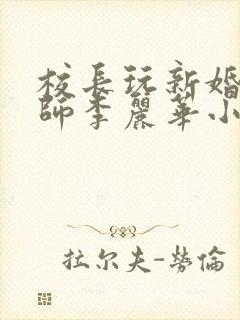 校長玩新婚
師李麗華小
拉尔夫-勞倫